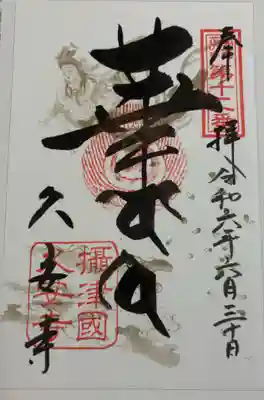 奉拝
第十二番
令和六年六月三十日
華
攝津國
久安寺
久安寺